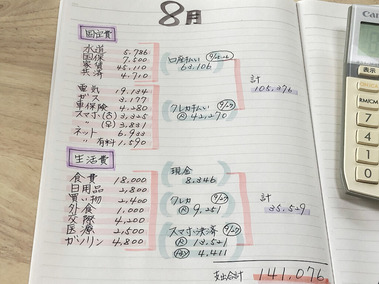 8月
固定費
水道 5,786
国保 7,500
家賃 45,110
共済 4,710
口座払い
63,106
電気 19,134
ガス 3,177
車保険 4,280
スマホ 3,325
3,831
ネット 6,933
有料 1,590
クレカ払い
42,270
計
105,376
生活費
食費 18,000
日用品 2,800
買い物 2,400
外食 1,000
交際 4,200
医療 2,500
ガソリン 4,800
現金
8,346
クレカ
9,251
スマホ決済
13,521
4,411
計
35,529
支出合計 141,076
Can
表示
RM/CM
7
4
1
0